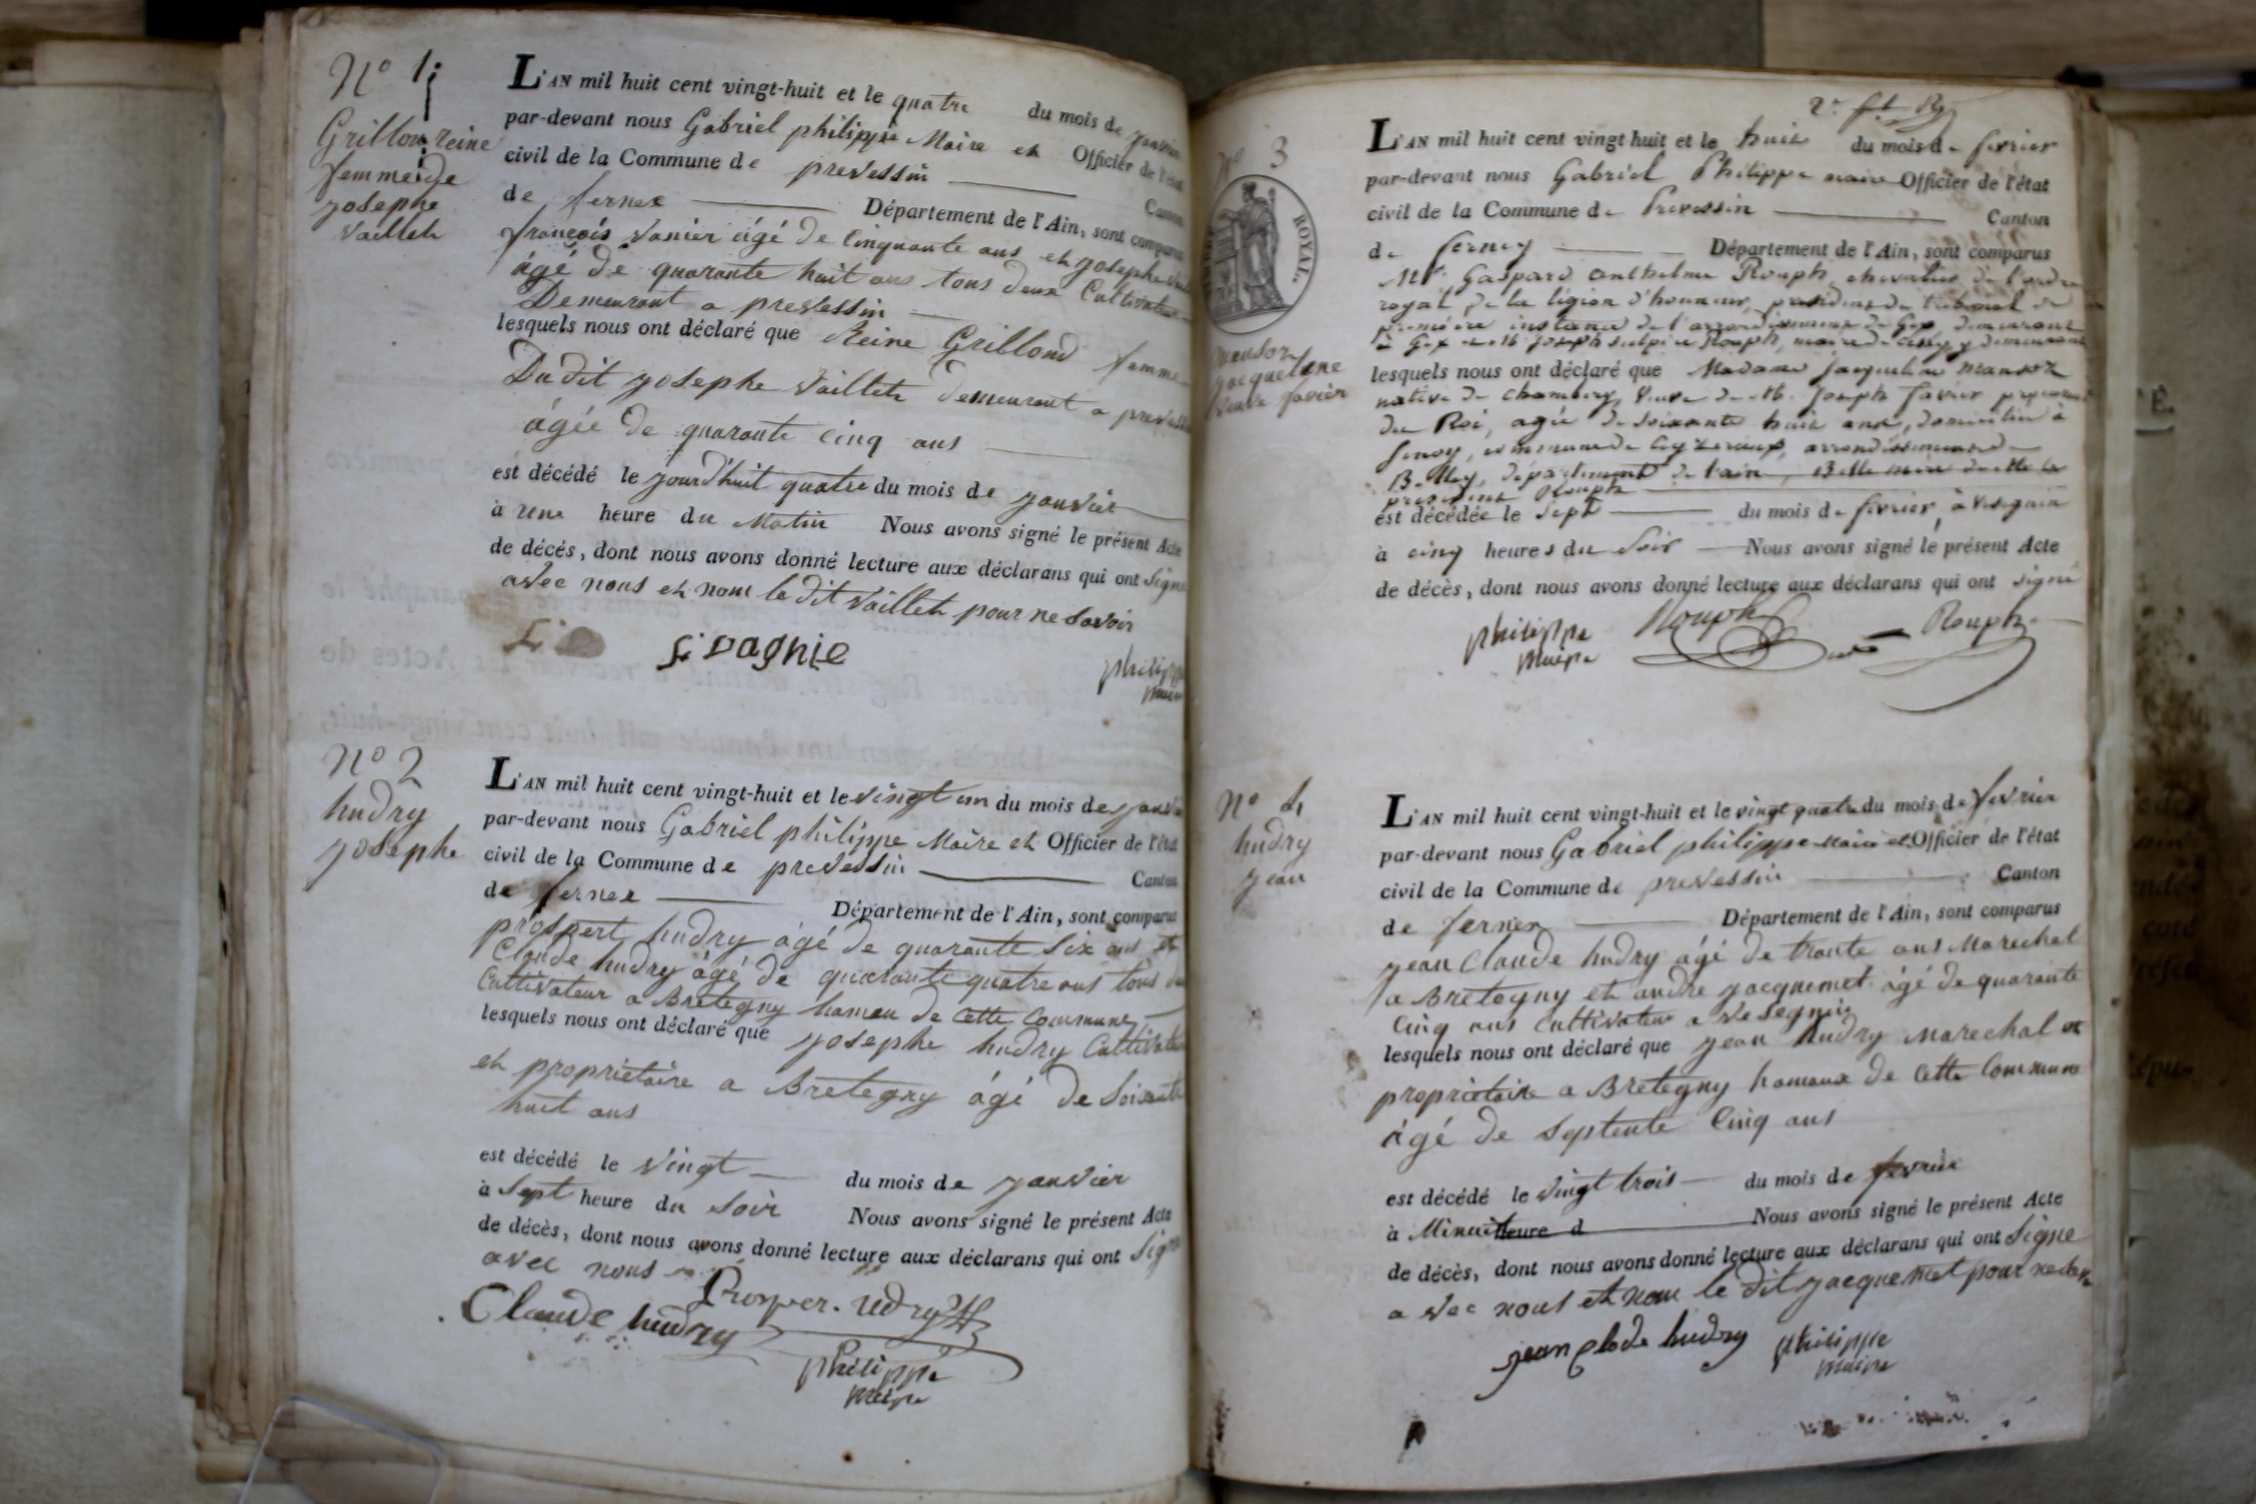 N° 1
Grillon reine
femme de
josephe
vaillet
L'AN mil huit cent vingt-huit et le quatre du mois de janvier
par-devant nous Gabriel philippe Maire et Officier de l'état
civil de la Commune de prevessin Canton
de fernex Département de l'Ain, sont comparus
françois vanier âgé de Cinquante ans et josephe
âgé de quarante huit ans tous deux Cultivateur
Demeurant a prevessin
lesquels nous ont déclaré que Reine Grillond femme
Du dit josephe vaillet demeurant a prevessin
âgée de quarante cinq ans
est décédé le jourd'huit quatre du mois de janvier
à une heure du Matin Nous avons signé le présent Acte
de décés, dont nous avons donné lecture aux déclarans qui ont Signé
avec nous et nom le dit vaillet pour ne savoir
philippe
maire
N° 2
hudry
josephe
L'AN mil huit cent vingt-huit et le vingt un du mois de janvier
par-devant nous Gabriel philippe Maire et Officier de l'état
civil de la Commune de prevessin Canton
de fernex Département de l'Ain, sont comparus
prospert hudry âgé de quarante six ans et
Claude hudry âgé de quarante quatre ans tous
Cultivateur a Bretegny hameau de Cette Commune
lesquels nous ont déclaré que josephe hudry Cultivateur
et proprietaire a Bretegny âgé de Soisante
huit ans
est décédé le vingt du mois de janvier
à Sept heure du Soir Nous avons signé le présent Acte
de décès, dont nous avons donné lecture aux déclarans qui ont Signé
avec nous
Prosper. udry
Claude hudry
philippe
maire
N° 3
ROYAL.
mansoz
jacqueline
veuve favier
L'AN mil huit cent vingt huit et le huit du mois de fevrier
par-devant nous Gabriel Philippe maire Officier de l'état
civil de la Commune de Prevessin Canton
de ferney Département de l'Ain, sont comparus
Mr. Gaspard anthelme Rouph, chevalier de l'ordre
royal de la légion d'honneur, president du tribunal de
première instance de l'arrondissement de Gex, demeurant
à Gex et M. Joseph sulpice Rouph, maire de cessy y demeurant
lesquels nous ont déclaré que Madame jacqueline mansoz
native de chambery, Veuve de M. Joseph favier
du Roi, agée de soixante huit ans, domiciliée à
commune de ceyzerieux, arrondissement de
Belley, département de l'ain, Belle mère de Mr le
president Rouph
est décédée le Sept du mois de fevrier, à vesegnin
à cinq heures du Soir Nous avons signé le présent Acte
de décès, dont nous avons donné lecture aux déclarans qui ont signé
philippe Rouph Rouph
maire
N° 4
hudry
jean
L'AN mil huit cent vingt-huit et le vingt quatre du mois de fevrier
par-devant nous Gabriel philippe Maire et Officier de l'état
civil de la Commune de prevessin Canton
de fernex Département de l'Ain, sont comparus
jean Claude hudry âgé de trante ans Marechal
a Bretegny et andre jacquemet âgé de quarante
Cinq ans Cultivateur a vesegnin
lesquels nous ont déclaré que jean hudry Marechal et
proprietaire a Bretegny hameaux de Cette Commune
âgé de Septente Cinq ans
est décédé le vingt trois du mois de fevrier
à Minuit heure d Nous avons signé le présent Acte
de décès, dont nous avons donné lecture aux déclarans qui ont Signe
avec nous et nom le dit jacquemet pour ne
jean clode hudry philippe
maire